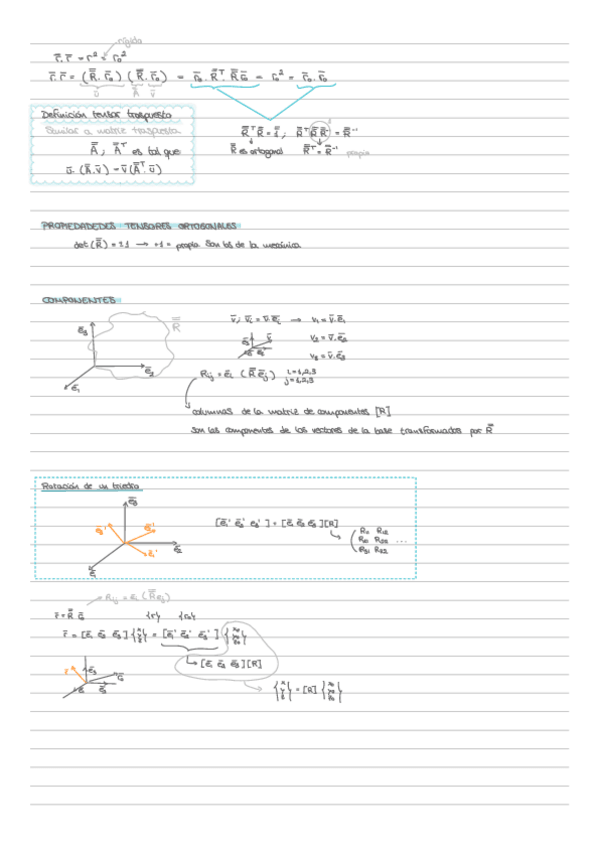 rígido
r̄.r̄ = r² = r₀²
r̄.r̄ = (R̿.r̄₀) (R̿.r̄₀) = r̄₀.R̿ᵀ.R̿ r̄₀ = r₀² = r̄₀.r̄₀
ū A̿ v̄
Definición tensor traspuesto
Similar a matriz traspuesta
A̿; A̿ᵀ es tal que
ū.(A̿.v̄) = v̄(A̿ᵀ.ū)
R̿ᵀR̿ = 1̿ ;
R̿ es ortogonal R̿ᵀ = R̿⁻¹ propio
PROPIEDADEDES TENSORES ORTOGONALES
det(R̿) = ±1 → +1 = propio. Son los de la mecánica.
COMPONENTES
R̿
ē₃
ē₂
ē₁
v̄; vᵢ = v̄.ēᵢ → v₁ = v̄.ē₁
v₂ = v̄.ē₂
v₃ = v̄.ē₃
Rᵢⱼ = ēᵢ (R̿ēⱼ) i=1,2,3
j=1,2,3
columnas de la matriz de componentes [R]
son las componentes de los vectores de la base transformados por R̿
Rotación de un triedro
ē₃
ē₂' ē₃'
ē₁' ē₂
ē₁
[ē₁' ē₂' ē₃'] = [ē₁ ē₂ ē₃][R]
R₁₁ R₁₂
R₂₁ R₂₂ ...
R₃₁ R₃₂
Rᵢⱼ = ēᵢ (R̿ēⱼ)
r̄ = R̿ r̄₀ {r} {r₀}
r̄ = [ē₁ ē₂ ē₃] {x y z} = [ē₁' ē₂' ē₃'] {x₀ y₀ z₀}
[ē₁ ē₂ ē₃][R]
{x y z} = [R] {x₀ y₀ z₀}